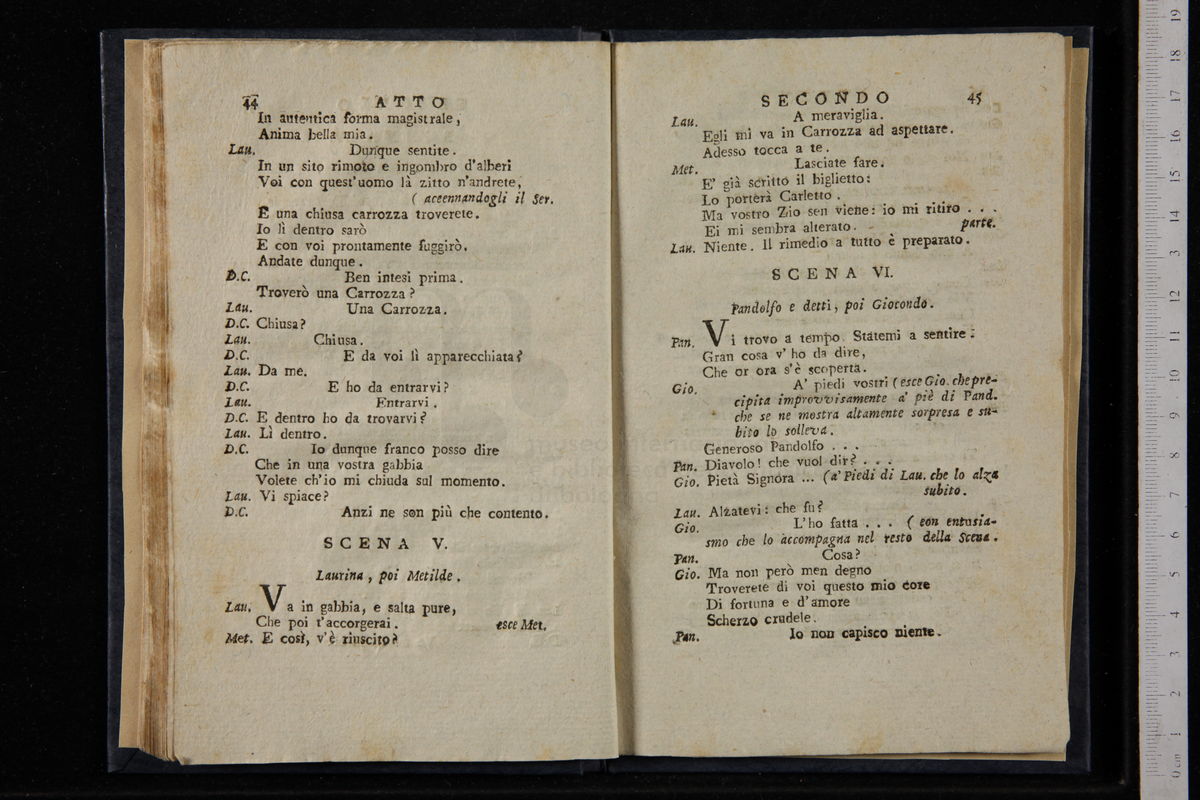 44 ATTO
In autentica forma magistrale,
Anima bella mia.
Lau. Dunque sentite.
In un sito rimoto e ingombro d'alberi
Voi con quest'uomo là zitto n'andrete,
( aceennandogli il Ser.
E una chiusa carrozza troverete.
Io lì dentro sarò
E con voi prontamente fuggirò.
Andate dunque.
D.C. Ben intesi prima.
Troverò una Carrozza?
Lau. Una Carrozza.
D.C. Chiusa?
Lau. Chiusa.
D.C. E da voi lì apparecchiata?
Lau. Da me.
D.C. E ho da entrarvi?
Lau. Entrarvi.
D.C. E dentro ho da trovarvi?
Lau. Lì dentro.
D.C. Io dunque franco posso dire
Che in una vostra gabbia
Volete ch'io mi chiuda sul momento.
Lau. Vi spiace?
D.C. Anzi ne son più che contento.
SCENA V.
Laurina, poi Metilde.
Lau. Va in gabbia, e salta pure,
Che poi t'accorgerai. esce Met.
Met. E così, v'è riuscito?
SECONDO 45
Lau. A meraviglia.
Egli mi va in Carrozza ad aspettare.
Adesso tocca a te.
Met. Lasciate fare.
E' già scritto il biglietto:
Lo porterà Carletto.
Ma vostro Zio sen viene: io mi ritiro . . .
Ei mi sembra alterato. parte.
Lau. Niente. Il rimedio a tutto è preparato.
SCENA VI.
Pandolfo e detti, poi Giocondo.
Pan. Vi trovo a tempo. Statemi a sentire:
Gran cosa v' ho da dire,
Che or ora s'è scoperta.
Gio. A' piedi vostri (esce Gio. che pre-
cipita improvvisamente a' piè di Pand.
che se ne mostra altamente sorpresa e su-
bito lo solleva.
Generoso Pandolfo . . .
Pan. Diavolo! che vuol dir? . . .
Gio. Pietà Signora ... (a' Piedi di Lau. che lo alza
subito.
Lau. Alzatevi: che fu?
Gio. L'ho fatta . . . ( con entusia-
smo che lo accompagna nel resto della Scena.
Pan. Cosa?
Gio. Ma non però men degno
Troverete di voi questo mio core
Di fortuna e d'amore
Scherzo crudele.
Pan. Io non capisco niente.